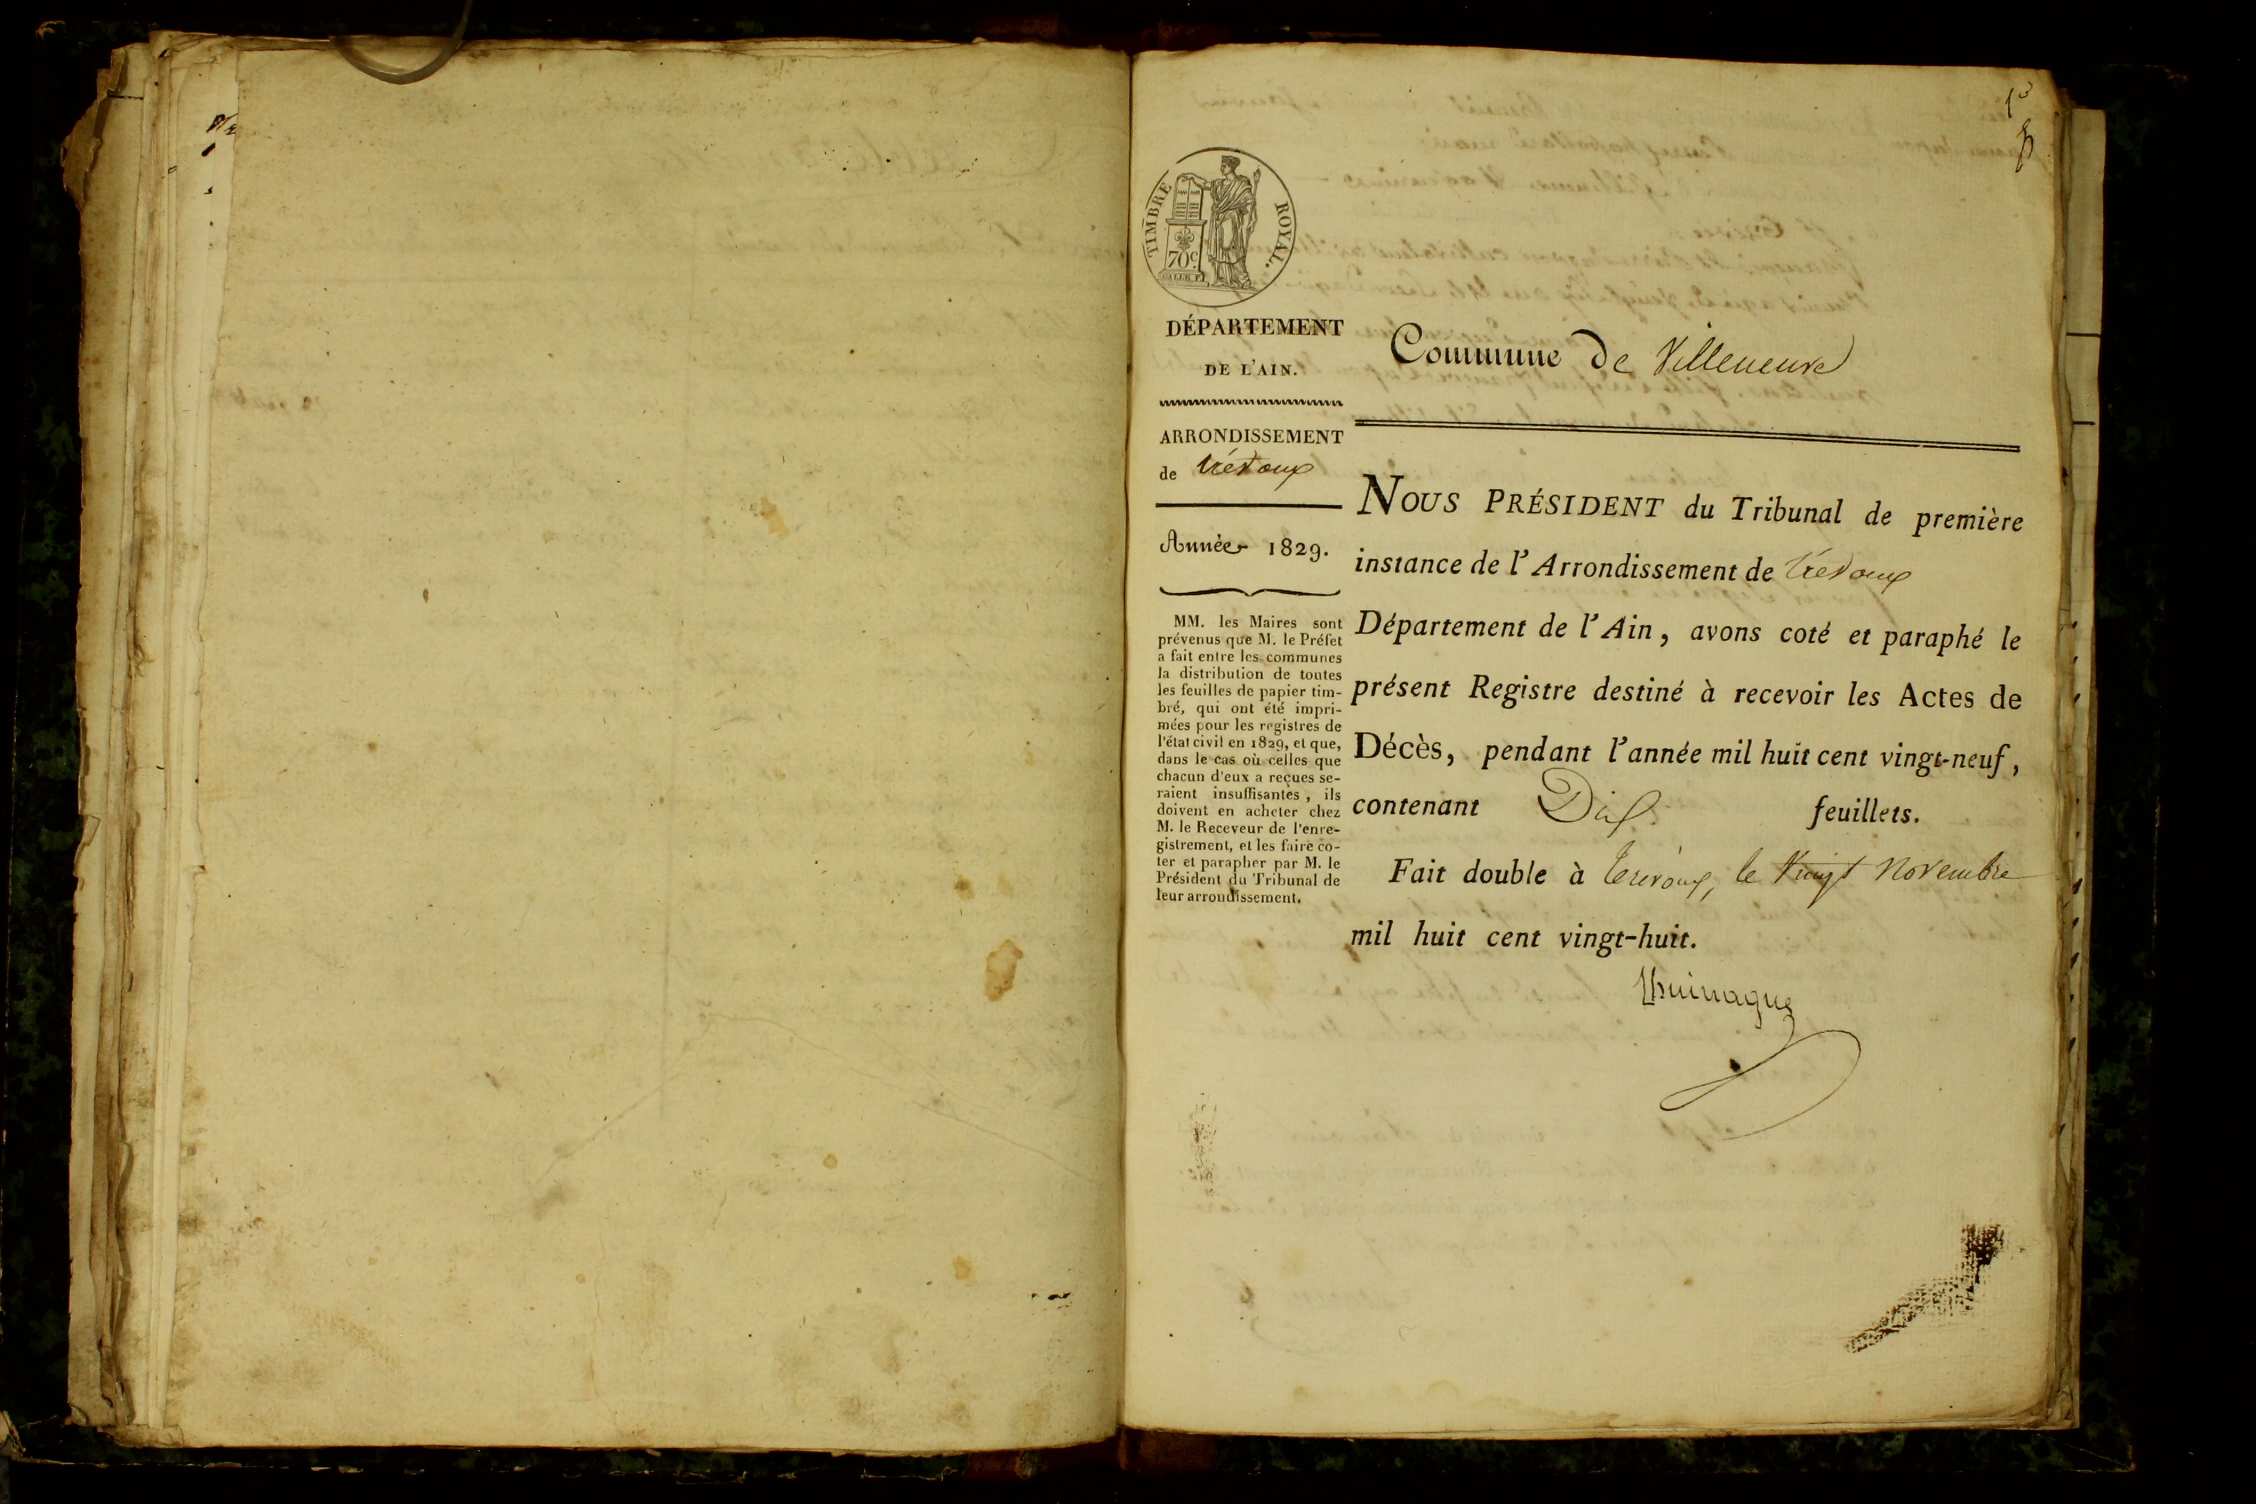 TIMBRE ROYAL.
70c.
DÉPARTEMENT
DE L'AIN.
ARRONDISSEMENT
de Trévoux
Année 1829.
MM. les Maires sont
prévenus que M. le Préfet
a fait entre les communes
la distribution de toutes
les feuilles de papier tim-
bré, qui ont été impri-
mées pour les registres de
l'état civil en 1829, et que,
dans le cas où celles que
chacun d'eux a reçues se-
raient insuffisantes, ils
doivent en acheter chez
M. le Receveur de l'enre-
gistrement, et les faire co-
ter et parapher par M. le
Président du Tribunal de
leur arrondissement.
Commune de Villeneuve
NOUS PRÉSIDENT du Tribunal de première
instance de l'Arrondissement de Trévoux
Département de l'Ain, avons coté et paraphé le
présent Registre destiné à recevoir les Actes de
Décès, pendant l'année mil huit cent vingt-neuf,
contenant Dix feuillets.
Fait double à Trévoux, le Vingt Novembre
mil huit cent vingt-huit.